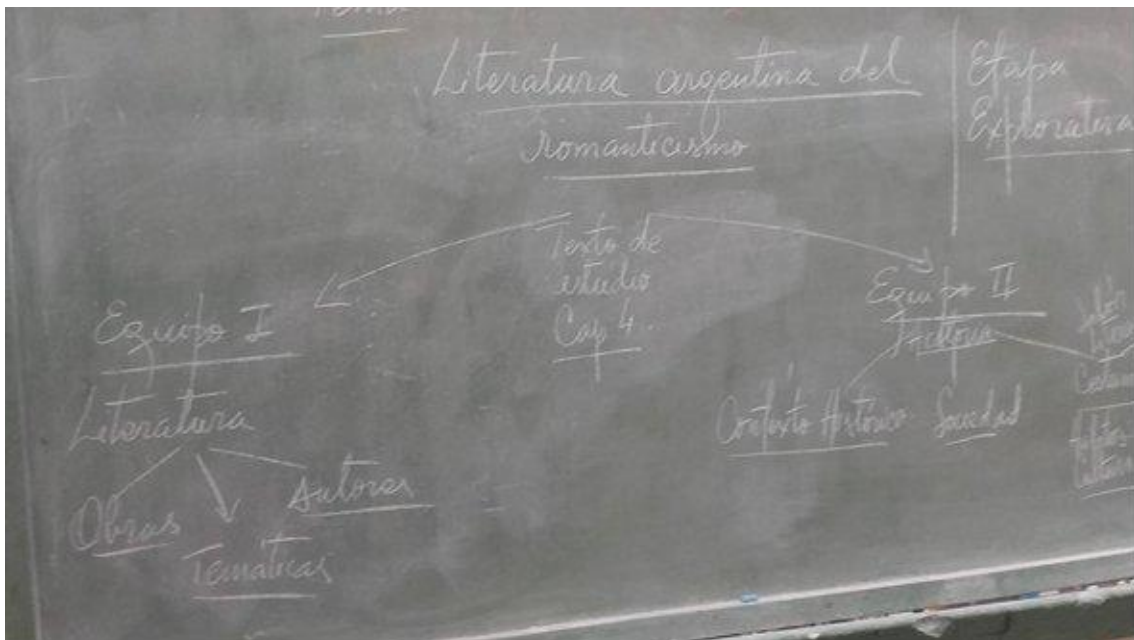 Tema
Literatura argentina del
romanticismo
Etapa
Explorativa
Texto de
estudio
Cap 4.
Equipo I
Literatura
Obras
Temáticas
Autores
Equipo II
Contexto Histórico
Sociedad